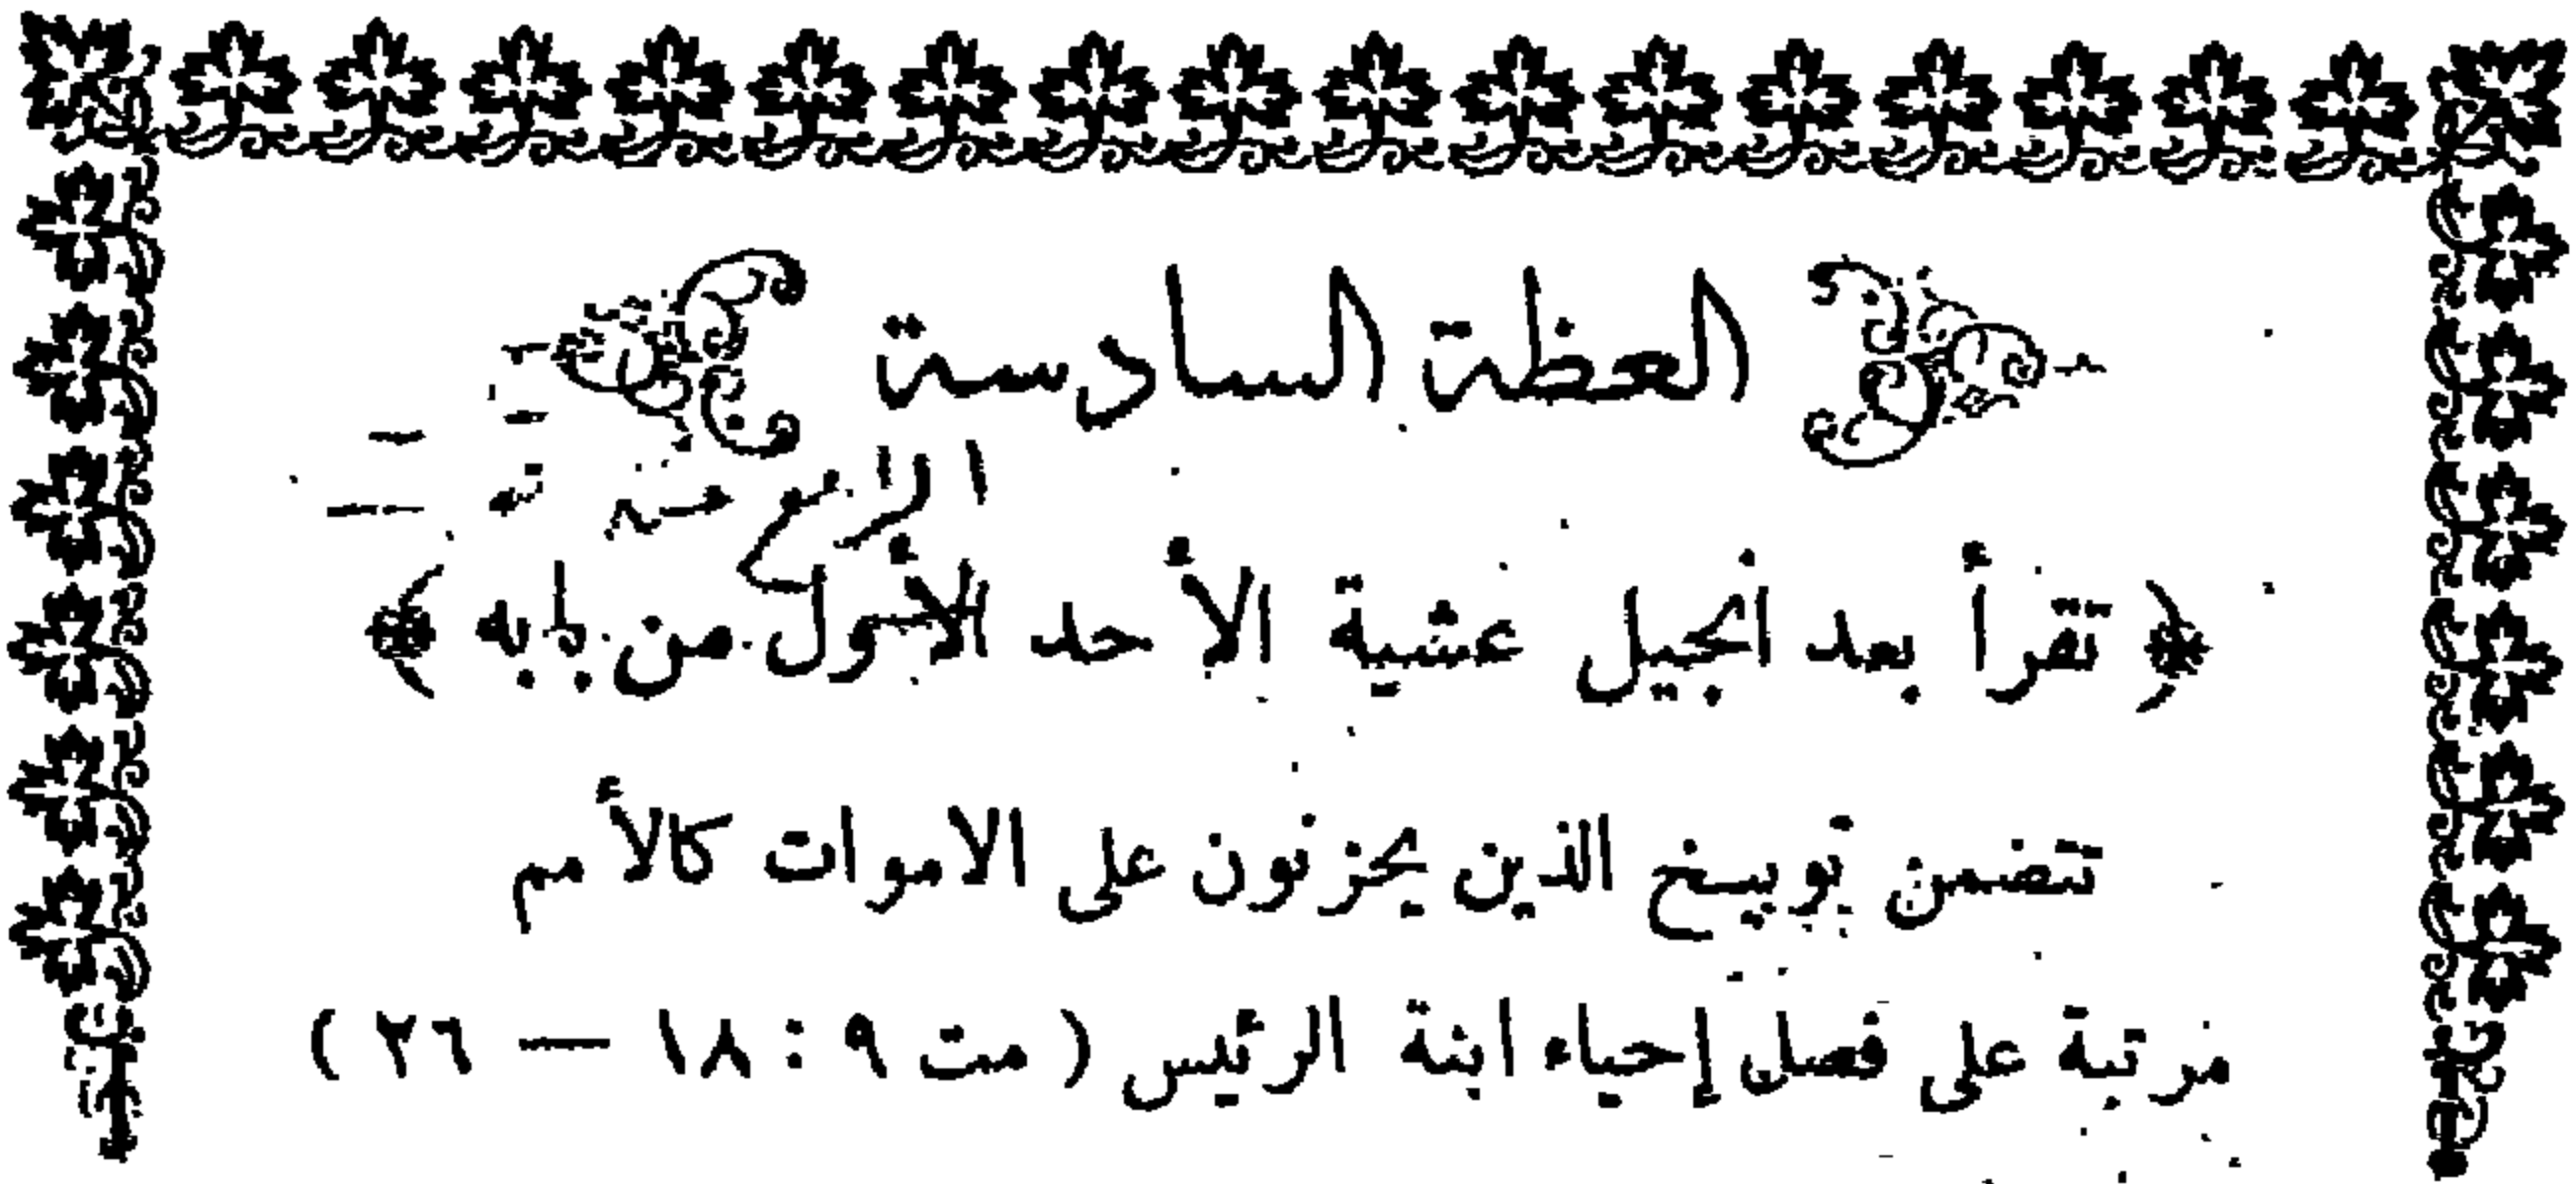 العظة السادسة
الرابع
﴿ تقرأ بعد انجيل عشية الأحد الأول من بابه ﴾
تتضمن توبيخ الذين يحزنون على الاموات كالأمم
مرتبة على فصل إحياء ابنة الرئيس ( مت ٩ : ١٨ — ٢٦ )